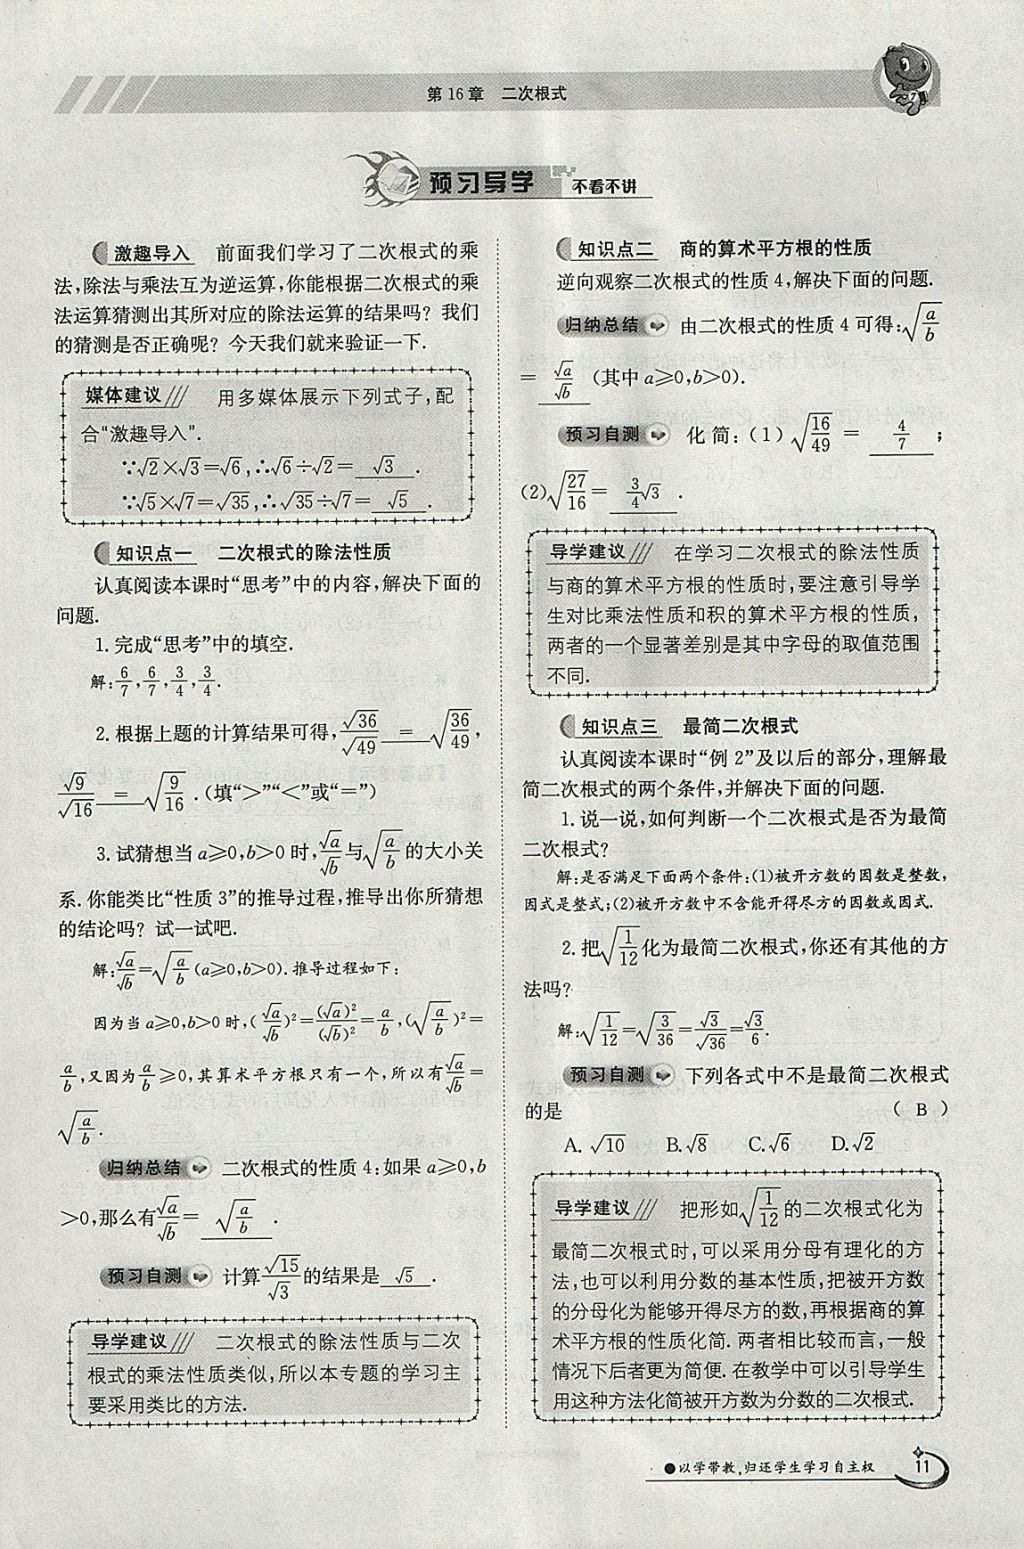 第16章 二次根式
预习导学 不看不讲
激趣导入 前面我们学习了二次根式的乘
法,除法与乘法互为逆运算,你能根据二次根式的乘
法运算猜测出其所对应的除法运算的结果吗? 我们
的猜测是否正确呢? 今天我们就来验证一下.
媒体建议 用多媒体展示下列式子,配
合“激趣导入”.
∵√2×√3=√6,∴√6÷√2= √3 .
∵√5×√7=√35,∴√35÷√7= √5 .
知识点一 二次根式的除法性质
认真阅读本课时“思考”中的内容,解决下面的
问题.
1.完成“思考”中的填空.
解:6/7,6/7,3/4,3/4.
2.根据上题的计算结果可得,√36/√49 = √(36/49),
√9/√16 = √(9/16).(填“>”“<”或“=”)
3.试猜想当a≥0,b>0时,√a/√b与√(a/b)的大小关
系.你能类比“性质3”的推导过程,推导出你所猜想
的结论吗? 试一试吧.
解:√a/√b=√(a/b)(a≥0,b>0).推导过程如下:
因为当a≥0,b>0时,(√a/√b)²=(√a)²/(√b)²=a/b,(√(a/b))²=
a/b,又因为a/b≥0,其算术平方根只有一个,所以有√a/√b=
√(a/b).
归纳总结 二次根式的性质4:如果a≥0,b
>0,那么有√a/√b= √(a/b) .
预习自测 计算√15/√3的结果是 √5 .
导学建议 二次根式的除法性质与二次
根式的乘法性质类似,所以本专题的学习主
要采用类比的方法.
知识点二 商的算术平方根的性质
逆向观察二次根式的性质4,解决下面的问题.
归纳总结 由二次根式的性质4可得:√(a/b)
= √a/√b (其中a≥0,b>0).
预习自测 化简:(1)√(16/49)= 4/7 ;
(2)√(27/16)= 3/4√3 .
导学建议 在学习二次根式的除法性质
与商的算术平方根的性质时,要注意引导学
生对比乘法性质和积的算术平方根的性质,
两者的一个显著差别是其中字母的取值范围
不同.
知识点三 最简二次根式
认真阅读本课时“例2”及以后的部分,理解最
简二次根式的两个条件,并解决下面的问题.
1.说一说,如何判断一个二次根式是否为最简
二次根式?
解:是否满足下面两个条件:(1)被开方数的因数是整数,
因式是整式;(2)被开方数中不含能开得尽方的因数或因式.
2.把√(1/12)化为最简二次根式,你还有其他的方
法吗?
解:√(1/12)=√(3/36)=√3/√36=√3/6.
预习自测 下列各式中不是最简二次根式
的是 ( B )
A.√10 B.√8 C.√6 D.√2
导学建议 把形如√(1/12)的二次根式化为
最简二次根式时,可以采用分母有理化的方
法,也可以利用分数的基本性质,把被开方数
的分母化为能够开得尽方的数,再根据商的算
术平方根的性质化简. 两者相比较而言,一般
情况下后者更为简便. 在教学中可以引导学生
用这种方法化简被开方数为分数的二次根式.
●以学带教,归还学生学习自主权
11